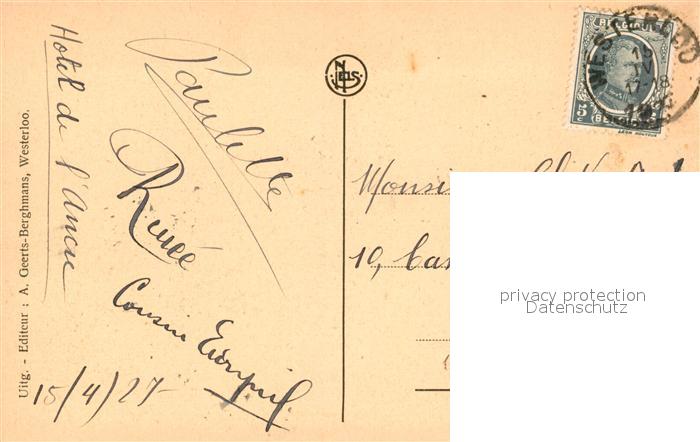 Hotel de l'Ancre
Uitg. - Editeur : A. Geerts-Berghmans, Westerloo.
Paulette
Renée
Cousin
15/4/27
NELS
BELGIQUE
5c
BELGIË
WESTERLO
Monsieur
10,
privacy protection
Datenschutz